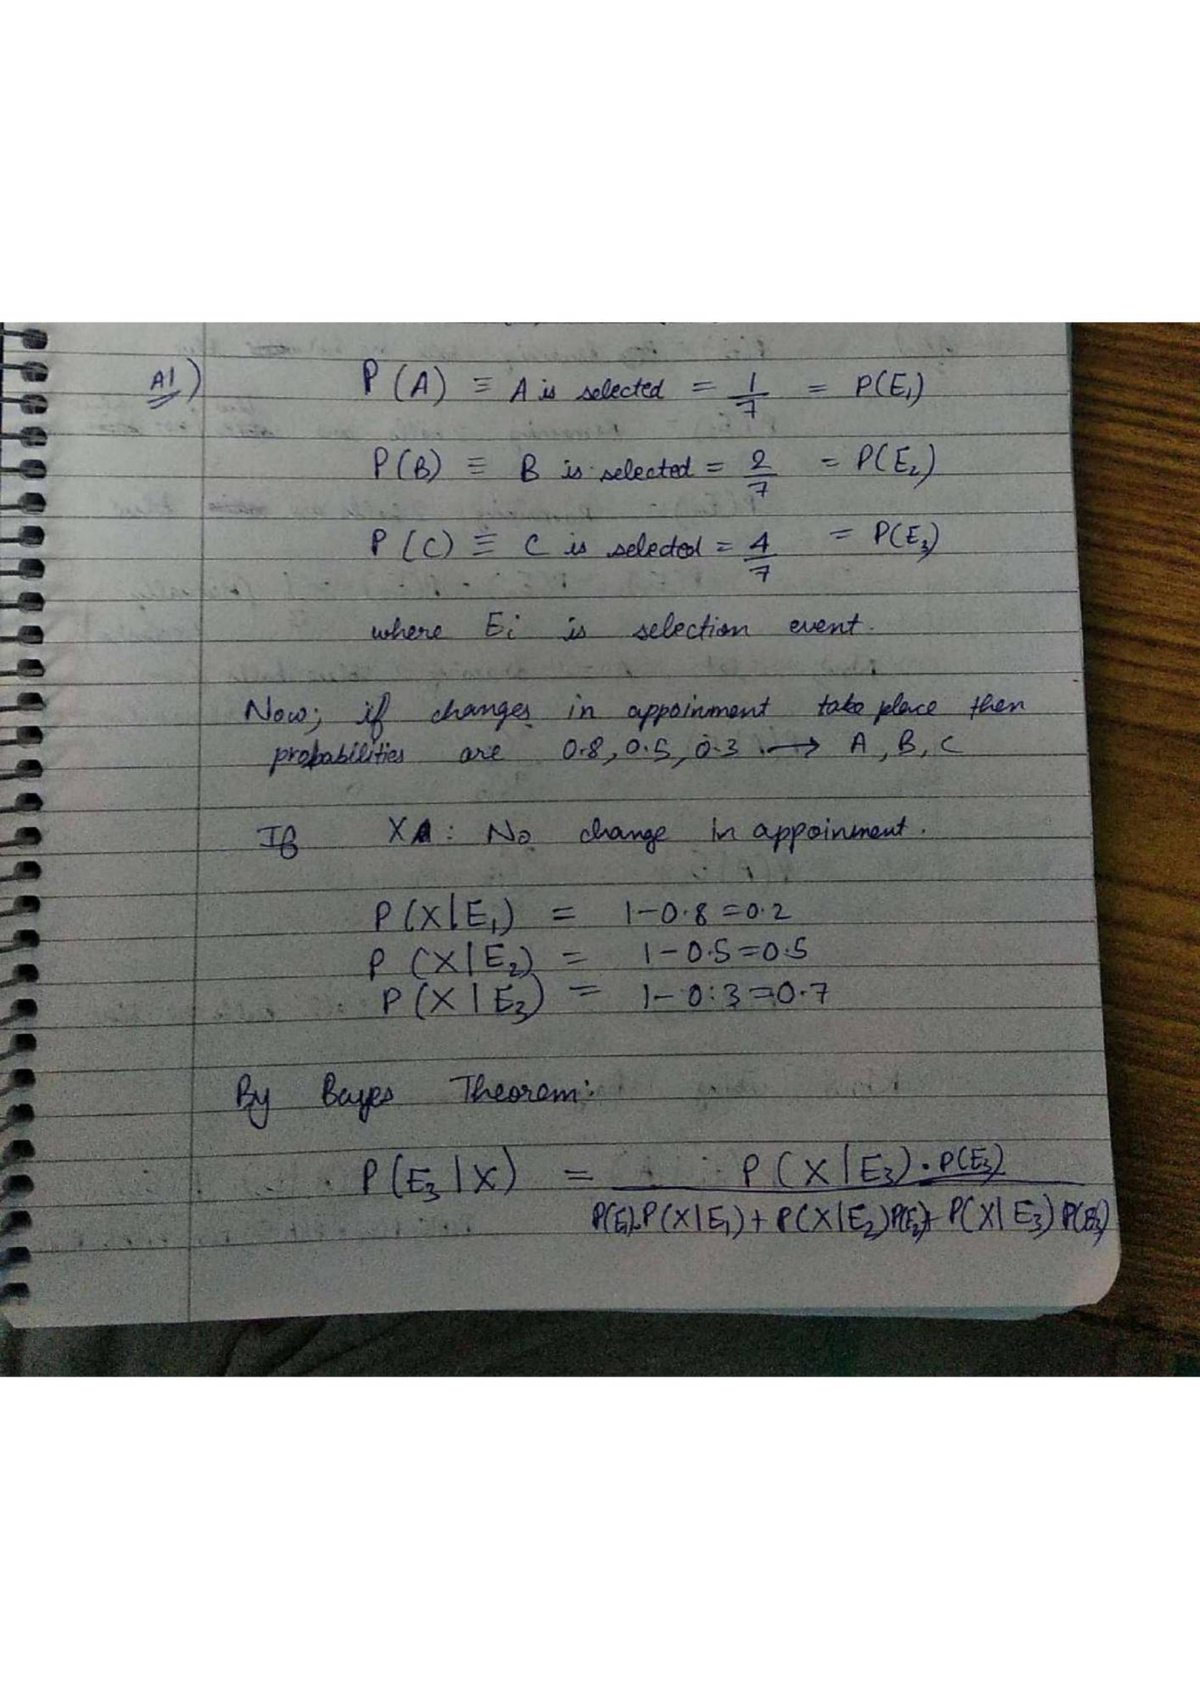 A1) P(A) ≡ A is selected = 1/7 = P(E₁)
P(B) ≡ B is selected = 2/7 = P(E₂)
P(C) ≡ C is selected = 4/7 = P(E₃)
where Ei is selection event.
Now; if changes in appoinment take place then
probabilities are 0.8, 0.5, 0.3 → A, B, C
If X : No change in appoinment.
P(X|E₁) = 1-0.8=0.2
P(X|E₂) = 1-0.5=0.5
P(X|E₃) = 1-0.3=0.7
By Bayes Theorem:
P(E₃|X) = P(X|E₃).P(E₃)
P(E₁).P(X|E₁)+P(X|E₂)P(E₂)+P(X|E₃)P(E₃)